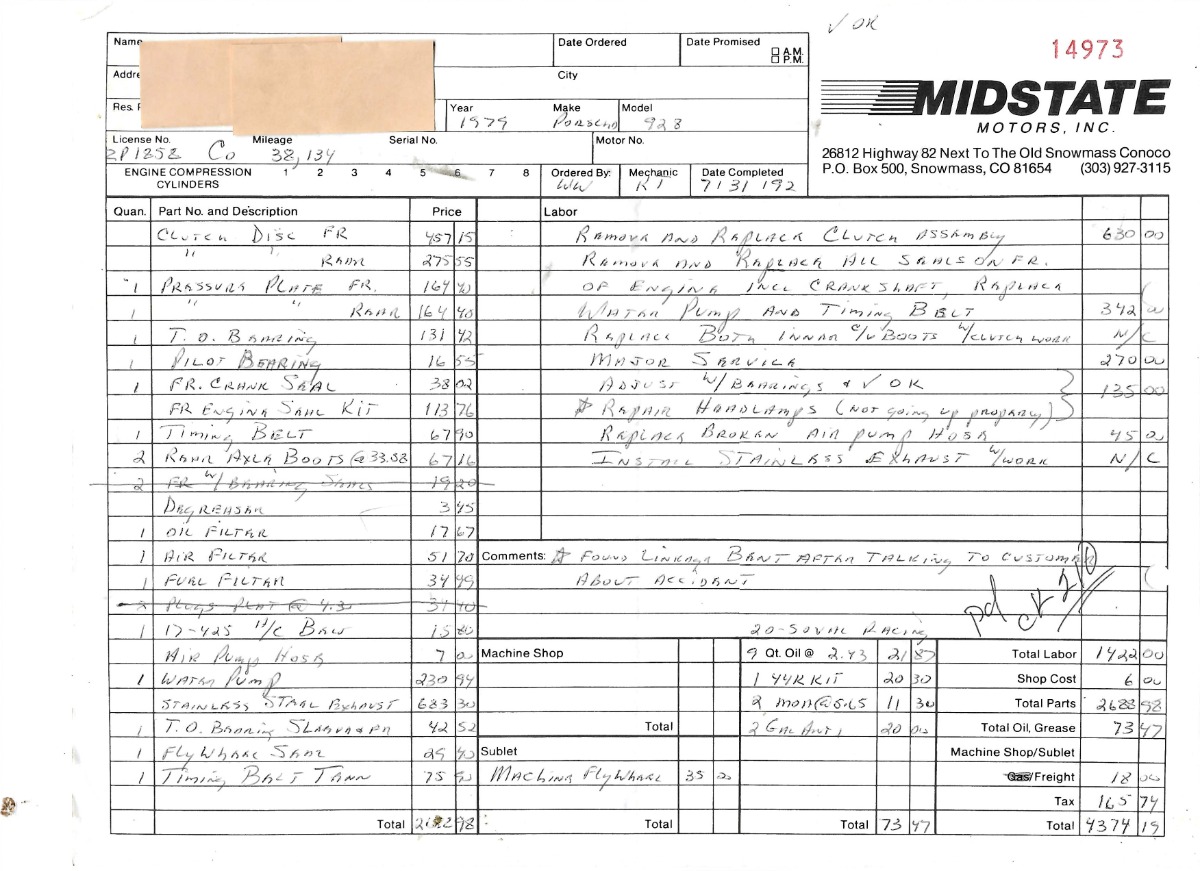 ✓ OK
14973
MIDSTATE
MOTORS, INC.
26812 Highway 82 Next To The Old Snowmass Conoco
P.O. Box 500, Snowmass, CO 81654 (303) 927-3115
Name Date Ordered Date Promised A.M. P.M.
Addre City
Res. P Year 1979 Make Porsche Model 928
License No. ZP1858 Co Mileage 38,134 Serial No. Motor No.
ENGINE COMPRESSION CYLINDERS 1 2 3 4 5 6 7 8 Ordered By: WW Mechanic RT Date Completed 7/31/92
Quan. Part No. and Description Price Labor
Clutch Disc FR 457 15 Remove and Replace Clutch Assembly 630 00
" " Rear 275 55 Remove and Replace All Seals on FR.
1 Pressure Plate FR. 164 40 of Engine Incl Crankshaft, Replace
1 " " Rear 164 40 Water Pump and Timing Belt 342 00
1 T.O. Bearing 131 42 Replace Both Inner C/V Boots W/Clutch Work N/C
1 Pilot Bearing 16 55 Major Service 270 00
1 FR. Crank Seal 38 02 Adjust W/Bearings & ✓ OK 135 00
FR Engine Seal Kit 113 76 Repair Headlamps (not going up properly)
1 Timing Belt 67 90 Replace Broken Air Pump Hose 45 00
2 Rear Axle Boots @ 33.58 67 16 Install Stainless Exhaust W/Work N/C
2 FR W/Bearing Seals 19 20
Degreaser 3 45
1 Oil Filter 17 67
1 Air Filter 51 70 Comments: Found Linkage Bent After Talking to Customer
1 Fuel Filter 34 49 About Accident
Plugs Plat @ 4.30 34 40 pd ck 210
1 17-425 A/C Belt 15 80 20-50 Val Racing
Air Pump Hose 7 00 Machine Shop 9 Qt. Oil @ 2.43 21 87 Total Labor 1422 00
1 Water Pump 230 94 1 44K Kit 20 30 Shop Cost 6 00
Stainless Steel Exhaust 683 30 2 @5.65 11 30 Total Parts 2688 98
1 T.O. Bearing Sleeve 42 52 Total 2 Gal Anti 20 00 Total Oil, Grease 73 47
1 Flywheel Seal 29 40 Sublet Machine Shop/Sublet
1 Timing Belt Tenn 75 90 Machine Flywheel 35 00 Gas/Freight 18 00
Tax 165 74
Total 98 Total Total 73 47 Total 4374 19